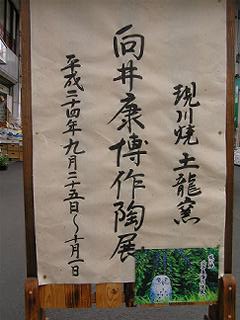 現川焼 土龍窯
向井康博作陶展
平成二十四年九月二十五日~十月一日